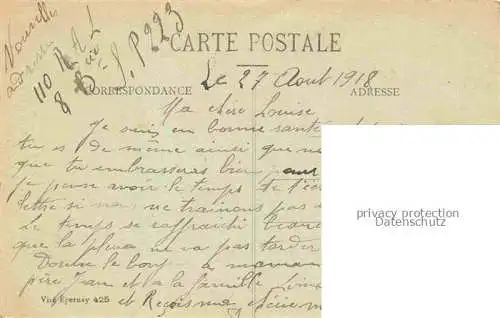 Nouvelle
adresse
110 R.A.L
8 Bie
S.P 223
CARTE POSTALE
Le 27 Aout 1918
CORRESPONDANCE
ADRESSE
Ma chère Louise
Je suis en bonne santé
tu es de même ainsi que
que tu embrasseras bien pour
je pense avoir le temps de
lettre si nous ne trainons pas
Le temps se raffraichi
que la pluie ne va pas tarder
Donne le bonj à maman
père Jean et a la famille
Visé Epernay 425
et Reçois ma chérie
privacy protection
Datenschutz